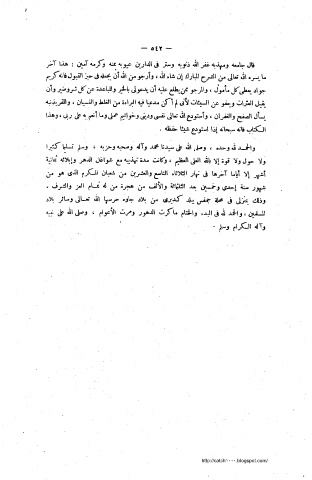 — ٥٤٢ —
قال جامعه ومهذبه غفر الله ذنوبه وستر في الدارين عيوبه بمنه وكرمه آمين : هذا آخر
ما يسره الله تعالى من الشرح المبارك إن شاء الله ، وأرجو من الله أن يجعله في حيز القبول فإنه كريم
جواد يعطى كل مأمول ، والمرجو ممن يطلع عليه أن يدعو لى بالخير والمباعدة عن كل شر وضير وأن
يقيل العثرات ويعفو عن السيئات لأنى لم أكن مدعيا فيه البراءة من الغلط والنسيان ، والمقر بذنبه
يسأل الصفح والغفران ، وأستودع الله تعالى نفسى ودينى وخواتيم عملى وما أنعم به على ربى ، وهذا
الكتاب فإنه سبحانه إذا استودع شيئا حفظه .
والحمد لله وحده ، وصلى الله على سيدنا محمد وآله وصحبه وحزبه ، وسلم تسليما كثيرا
ولا حول ولا قوة إلا بالله العلى العظيم ، وكانت مدة تهذيبه مع شواغل الدهر وإبلائه ثمانية
أشهر إلا أياما آخرها في نهار الثلاثاء التاسع والعشرين من شعبان المكرم الذى هو من
شهور سنة إحدى وخمسين بعد الثلثمائة والألف من هجرة من له تمام العز والشرف .
وذلك بمنزلى في محلة جمفس ببلد كديرى من بلاد جاوه حرسها الله تعالى وسائر بلاد
المسلمين ، والحمد لله في البدء والختام ما كرت الدهور ومرت الأعوام ، وصلى الله على نبيه
وآله الكرام وسلم .